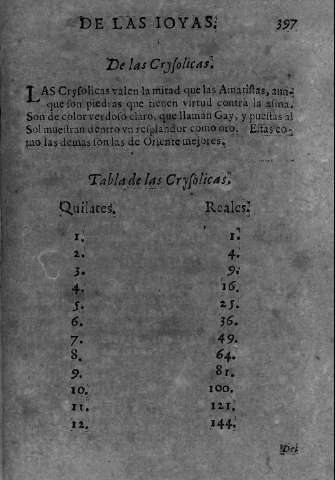 DE LAS IOYAS. 397
De las Crysolicas.
LAS Crysolicas valen la mitad que las Amatistas, aun-
que son piedras que tienen virtud contra la asma.
Son de color verdoso claro, que llaman Gay, y puestas al
Sol muestran dentro vn resplandor como oro. Estas co-
mo las demas son las de Oriente mejores.
Tabla de las Crysolicas.
Quilates. Reales.
1. 1.
2. 4.
3. 9.
4. 16.
5. 25.
6. 36.
7. 49.
8. 64.
9. 81.
10. 100.
11. 121.
12. 144.
Del